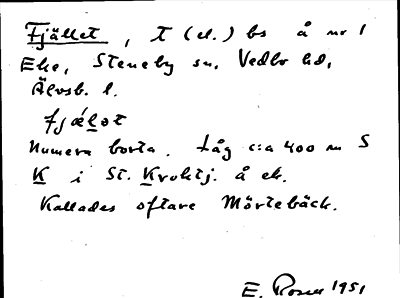 Fjället, T (el.) bs å nr 1
Eke, Steneby sn, Vedbo hd,
Älvsb. l.
fjǽlət
Numera borta. Låg c:a 400 m S
K i St. Kroktj. å ek.
Kallades oftare Mörtebäck.
E. Rosen 1951